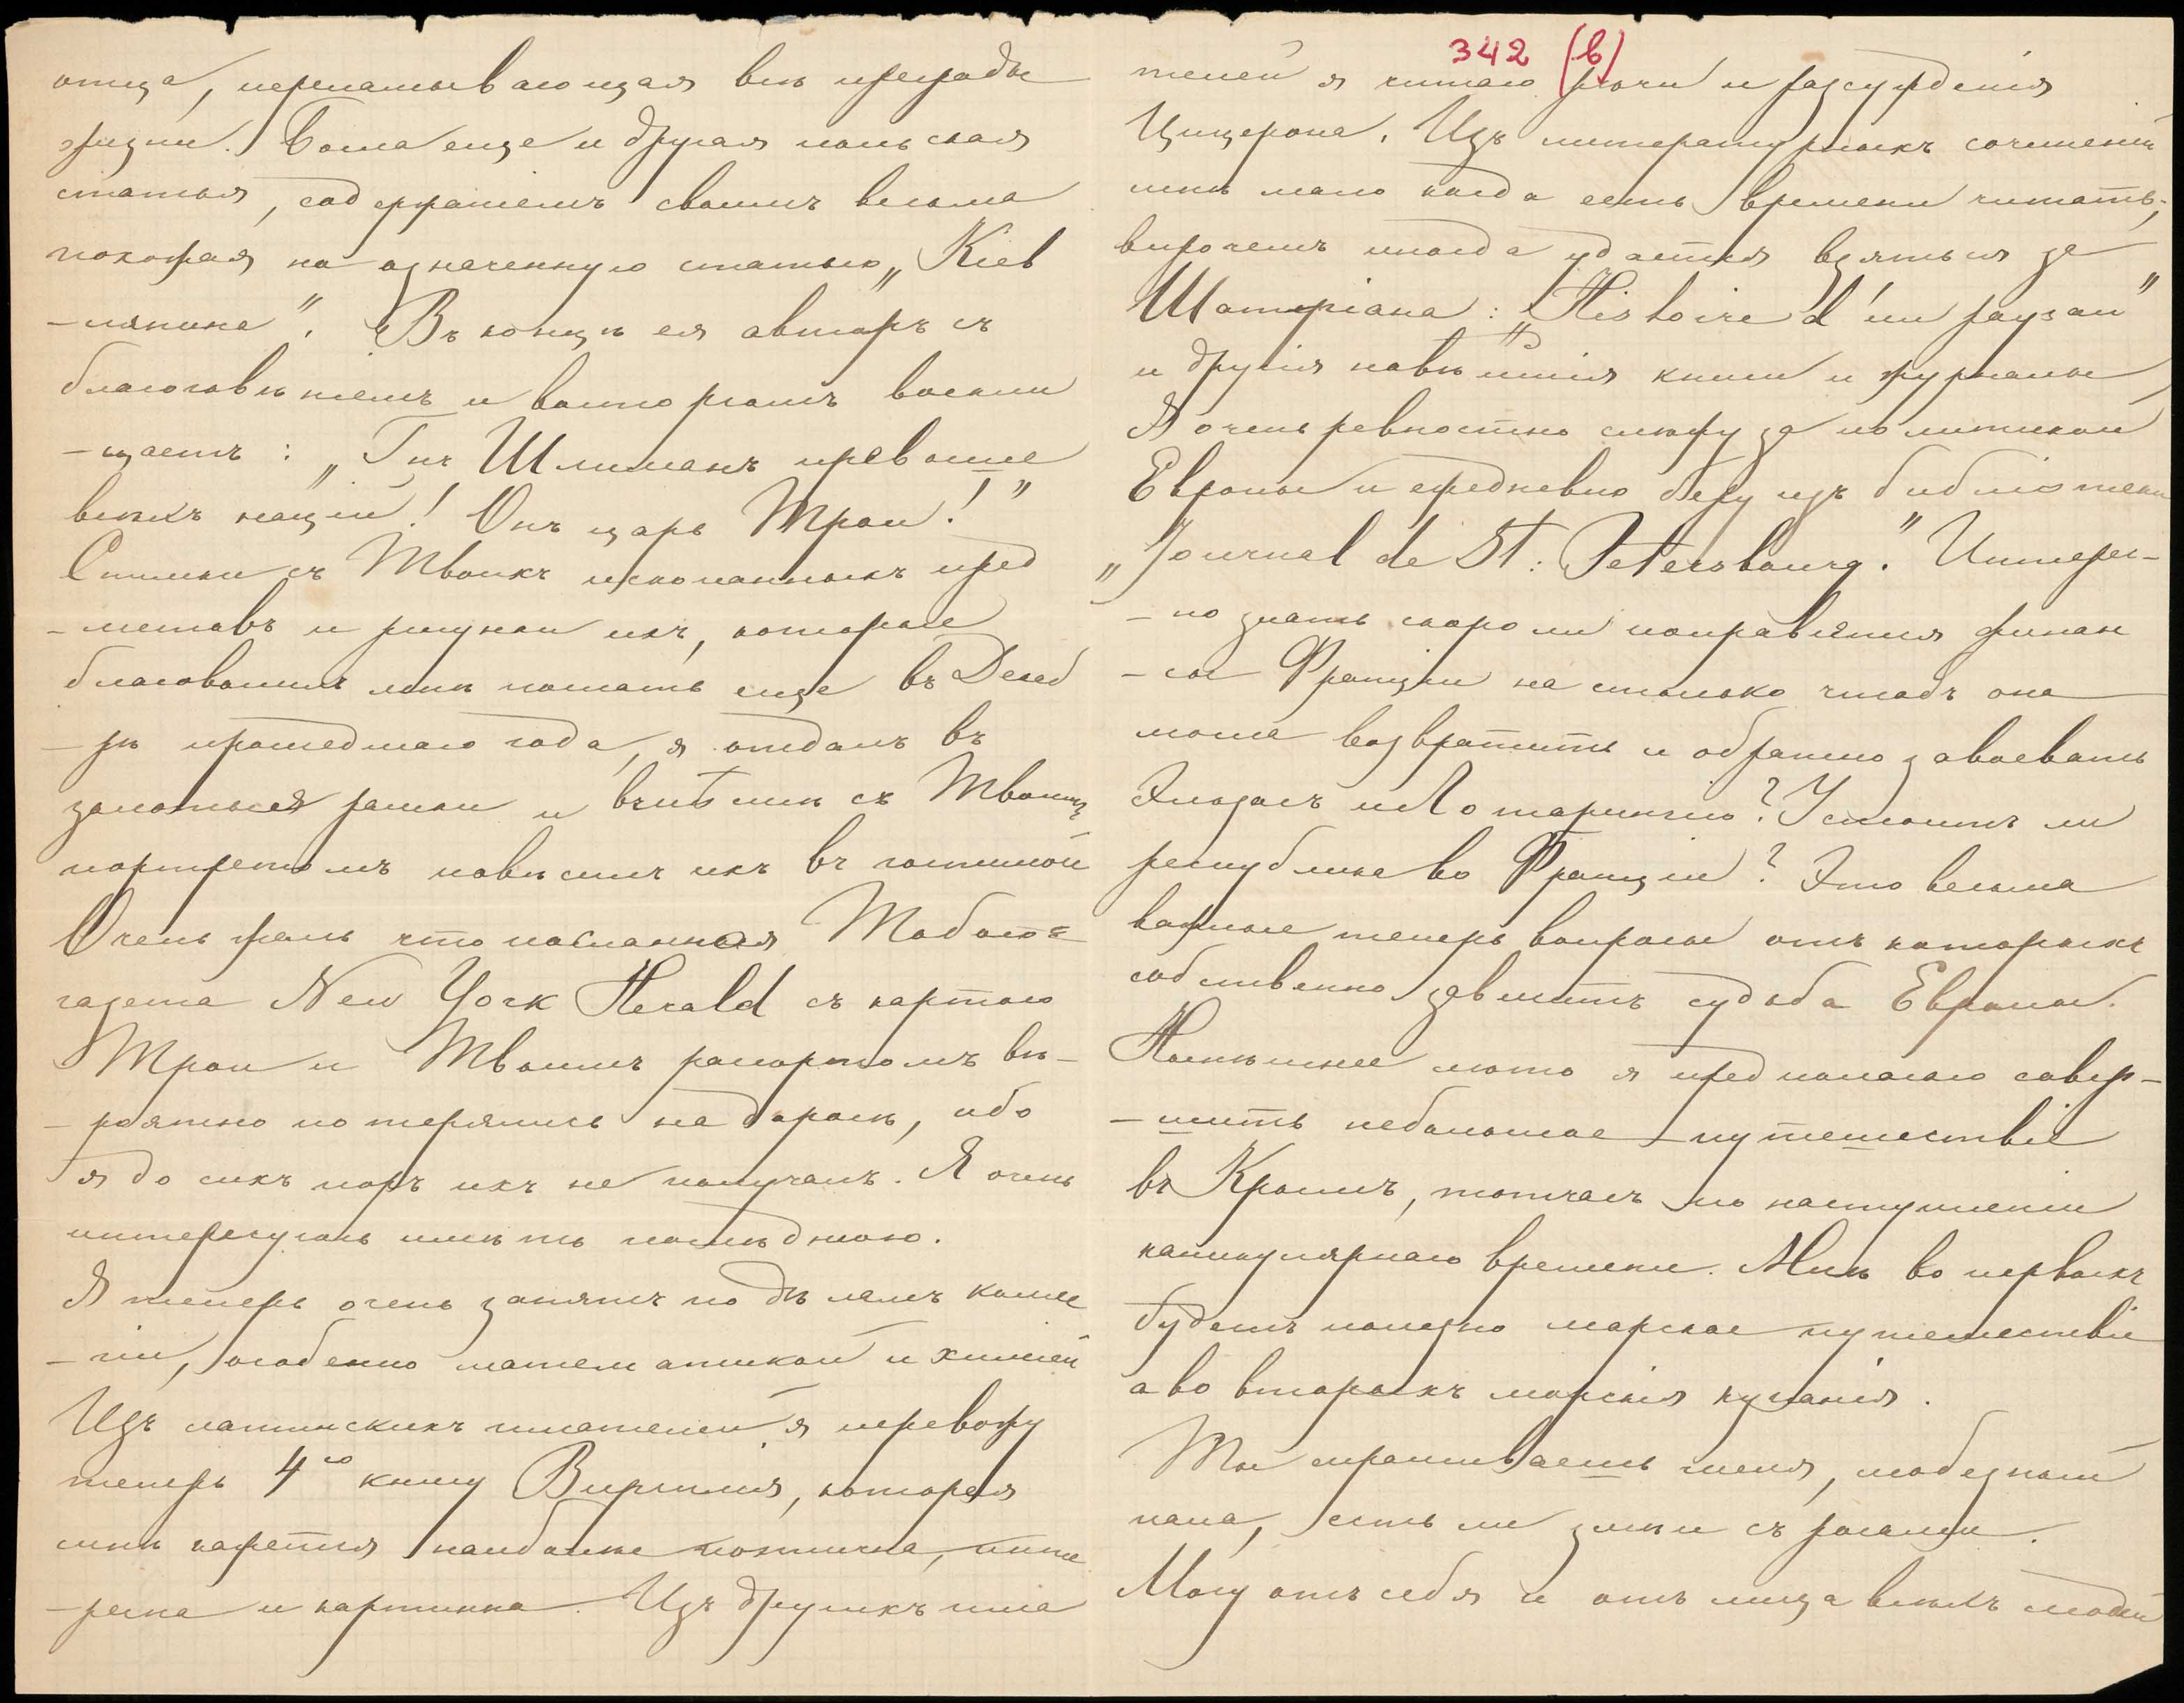 отца, переламывающая все преграды
жизни. Была еще и другая польская
статья, содержаніемъ своимъ весьма
похожая на означенную статью „Кіев
-лянина". Въ концѣ ея авторъ съ
благоговѣніемъ и восторгомъ восклИ
-цаетъ: „Гнъ Шлиманъ превыше
всѣхъ націй! Онъ царь Трои!"
Снимки съ Твоихъ ископанныхъ пред
-метовъ и рисунки ихъ, которые
благоволилъ мнѣ послать еще въ Декаб
-рѣ прошедшаго года, я отдалъ въ
золотыя рамки и вмѣстѣ съ Твоимъ
портретомъ повѣсилъ ихъ въ гостиной
Очень жаль что посланная Тобою
газета New York Herald съ картою
Трои и Твоимъ рапортомъ вѣ-
-роятно потерялись на дорогѣ, ибо
я до сихъ поръ ихъ не получалъ. Я очень
интересуюсь имѣть послѣднюю.
Я теперь очень занятъ по дѣламъ колле
-гіи, особенно математикой и химіей
Изъ латинскихъ писателей я перевожу
теперь 4ую книгу Виргилія, которая
мнѣ кажется наиболѣе поэтична, инте
-ресна и картинна. Изъ другихъ писа
342 (b)
телей я читаю рѣчи и разсужденія
Цицерона. Изъ литературныхъ сочиненій
мнѣ мало когда есть времени читать;
впрочемъ иногда удается взяться за
Шатріана: „Histoire d'un paysan"
и другія новѣйшія книги и журналы
Я очень ревностно слежу за политикой
Европы и ежедневно беру изъ библіотеки
„Journal de St: Petersbourg." Интерес-
-но знать скоро ли поправятся финан
-сы Франціи на столько чтобъ она
могла возвратить и обратно завоевать
Эльзасъ и Лотарингію? Устоитъ ли
республика во Франціи? Это весьма
важные теперь вопросы отъ которыхъ
собственно зависитъ судьба Европы.
Нынѣшнее лѣто я предполагаю совер-
-шить небольшое путешествіе
въ Крымъ, тотчасъ по наступленіи
каникулярнаго времени. Мнѣ во первыхъ
будетъ полезно морское путешествіе
а во вторыхъ морскія купанія.
Ты спрашиваешь меня, любезный
папа, есть ли змѣи съ рогами.
Могу отъ себя и отъ лица всѣхъ людей